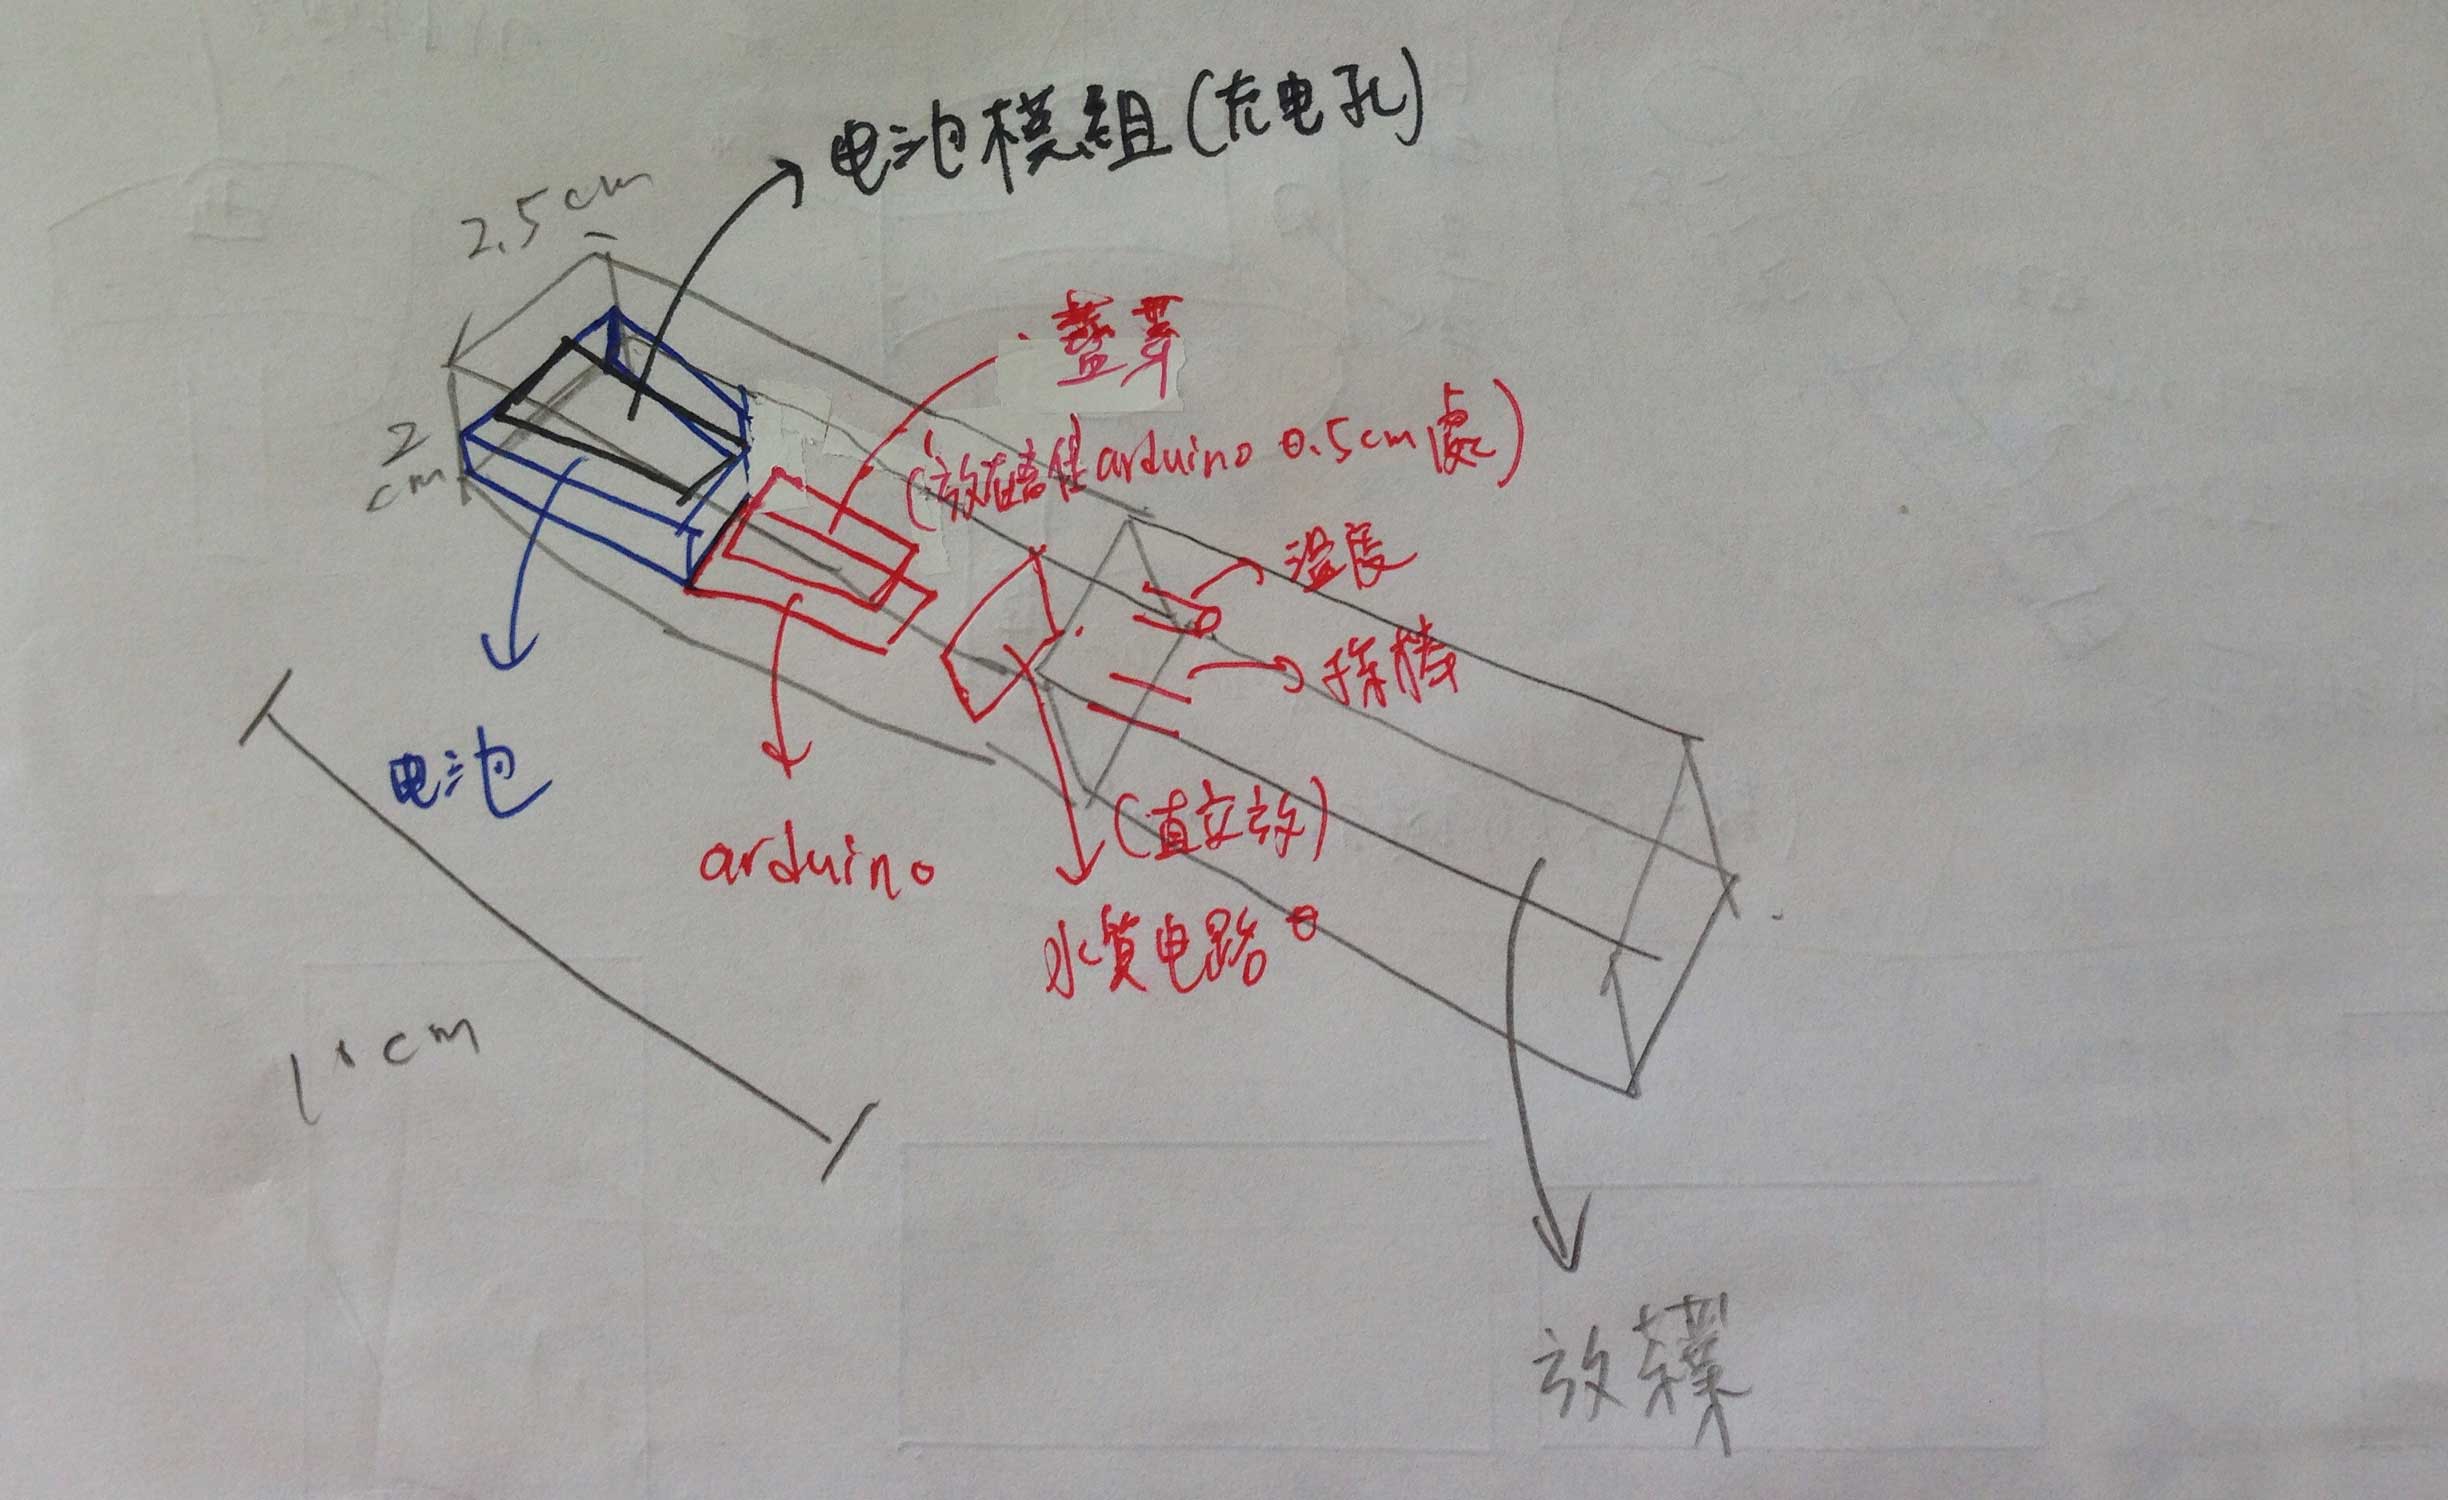 电池模組(充电孔)
2.5cm
2
cm
藍芽
arduino 0.5cm處)
温度
探棒
电池
arduino
(直立放)
水質电路
cm
放